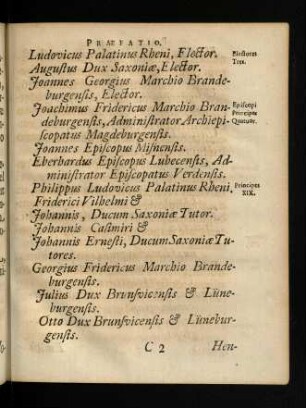 PRÆFATIO.
Ludovicus Palatinus Rheni, Elector.
Electores Tres.
Augustus Dux Saxoniæ, Elector.
Joannes Georgius Marchio Brande-
burgensis, Elector.
Joachimus Fridericus Marchio Bran-
Episcopi
deburgensis, Administrator Archiepi-
Principes
scopatus Magdeburgensis.
Quatuor.
Joannes Episcopus Misnensis.
Eberhardus Episcopus Lubecensis, Ad-
ministrator Episcopatus Verdensis.
Philippus Ludovicus Palatinus Rheni,
Principes XIX.
Friderici Vilhelmi &
Johannis, Ducum Saxoniæ Tutor.
Johannis Casimiri &
Johannis Ernesti, Ducum Saxoniæ Tu-
tores.
Georgius Fridericus Marchio Brande-
burgensis.
Julius Dux Brunsvicensis & Lüne-
burgensis.
Otto Dux Brunsvicensis & Lünebur-
gensis.
C 2 Hen-